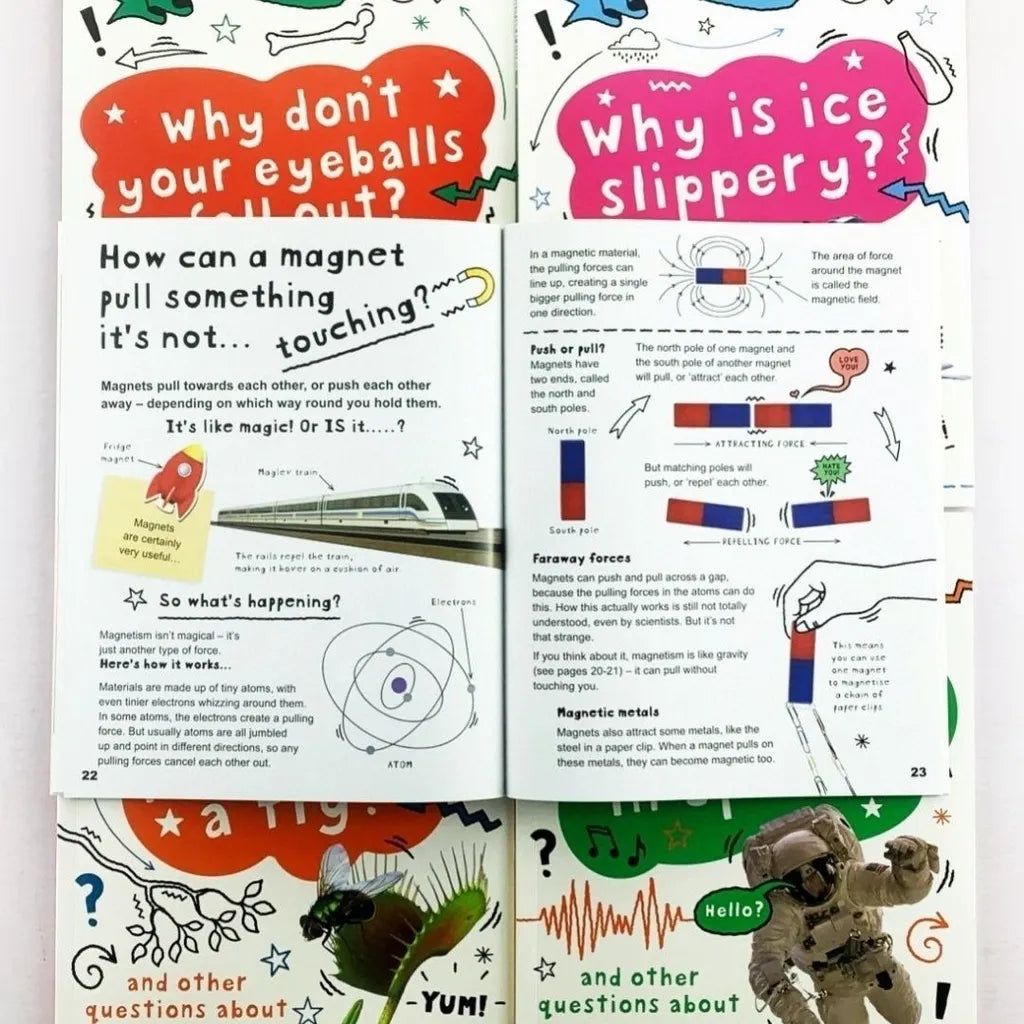 Why don't
your eyeballs
fall out?
Why is ice
slippery?
How can a magnet
pull something
it's not... touching?
Magnets pull towards each other, or push each other
away – depending on which way round you hold them.
It's like magic! Or IS it.....?
Fridge
magnet
Maglev train
Magnets
are certainly
very useful...
The rails repel the train,
making it hover on a cushion of air.
So what's happening?
Magnetism isn't magical – it's
just another type of force.
Here's how it works...
Materials are made up of tiny atoms, with
even tinier electrons whizzing around them.
In some atoms, the electrons create a pulling
force. But usually atoms are all jumbled
up and point in different directions, so any
pulling forces cancel each other out.
Electrons
ATOM
22
In a magnetic material,
the pulling forces can
line up, creating a single
bigger pulling force in
one direction.
The area of force
around the magnet
is called the
magnetic field.
Push or pull?
Magnets have
two ends, called
the north and
south poles.
North pole
South pole
The north pole of one magnet and
the south pole of another magnet
will pull, or 'attract' each other.
LOVE
YOU!
ATTRACTING FORCE
But matching poles will
push, or 'repel' each other.
HATE
YOU!
REPELLING FORCE
Faraway forces
Magnets can push and pull across a gap,
because the pulling forces in the atoms can do
this. How this actually works is still not totally
understood, even by scientists. But it's not
that strange.
If you think about it, magnetism is like gravity
(see pages 20-21) – it can pull without
touching you.
This means
you can use
one magnet
to magnetise
a chain of
paper clips
Magnetic metals
Magnets also attract some metals, like the
steel in a paper clip. When a magnet pulls on
these metals, they can become magnetic too.
23
a fly?
and other
questions about
YUM!
Hello?
and other
questions about